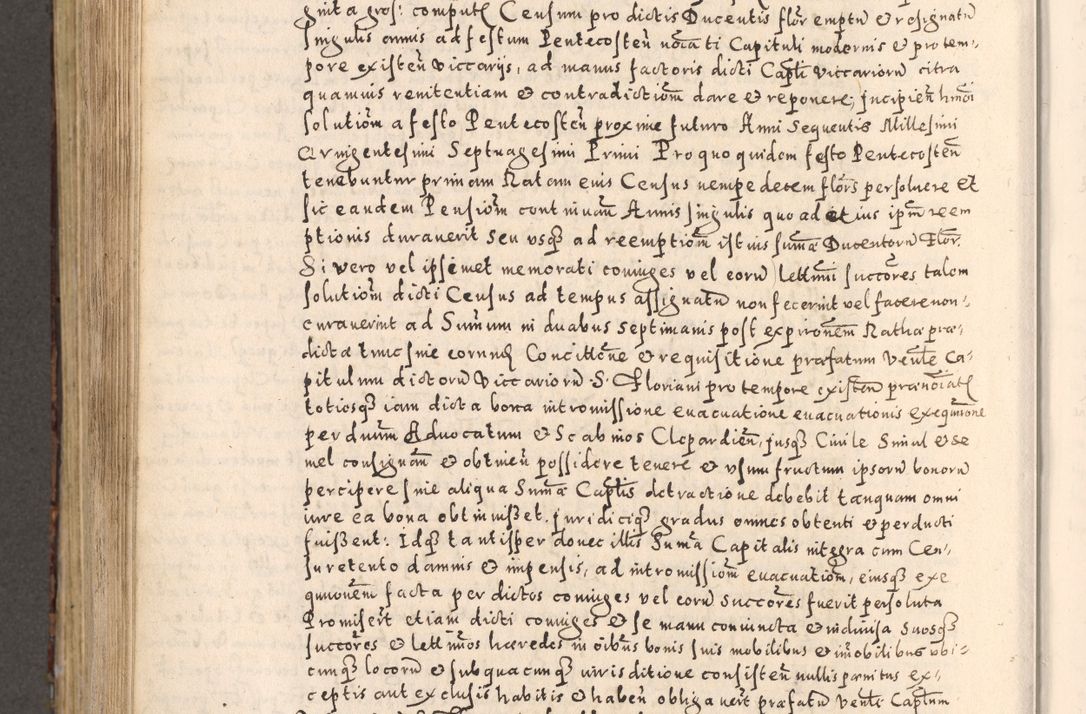 ginta gros: computes Censum pro dictis Ducentis flor emptu et resignatu
singulis annis ad festum Pentecosten noīati Capituli modernis et pro tem-
pore existeñ viccarijs, ad manus factoris dicti Capli viccarioru citra
quamuis renitentiam et contradictiom dare et reponere; incipień hmōi
solutiom a festo Pentecosteñ proxime futuro Anni sequentis Millesimi
Qringentesimi Septuagesimi Primi Pro quo quidem festo Pentecosteñ
tenebuntur primam Ratam eius Census nempe decem flors persoluere et
sic eandem Pensiom continuam Annis singulis quoad et ius ipm reem
ptionis durauerit seu vsq ad reemptiom istius suma Ducentoru Flor.
Si vero vel ipsemet memorati coniuges vel eoru lettimi succores talem
solutiom dicti Census ad tempus assignatu non fecerint vel facere non-
curauerint ad Sumum in duabus septimanis post expironem Rathæ præ-
dictæ tunc sine eorundē Concittone et requisitione præfatum venle Ca-
pitulum dictoru Viccarioru S. Floriani pro tempore existen prænoiates
totiesq iam dicta bona intromissione euacuatione euacuationis exequuione
per duum Aduocatum et Scabinos Clepardień, jusq Ciuile Simul et se
mel consignam et obtineñ possidere tenere et vsum fructum ipsoru bonoru
percipere sine aliqua Sumæ Caplis detractione debebit tanquam omni
iure ea bona obtinuisset, juridiciq gradus omnes obtenti et perducti
fuissent: Idq tantisper donec illis Suma Capitalis integra cum Cen-
su retento damnis et impensis, ad intromissiom euacuatiom, eiusq exe
quuonem facta per dictos coniuges vel eoru succores fuerit persoluta
Promisert etiam dicti coniuges et se manu coniuncta et indiuisa Suosq
succores et lettimos hæredes in oibus bonis suis mobilibus et imobilibus vbi-
cunq locoru et sub quacunq iurisditione consisteñ nullis pænitus ex-
ceptis aut exclusis habitis et habeñ obligauert præfatu Venle Caplum